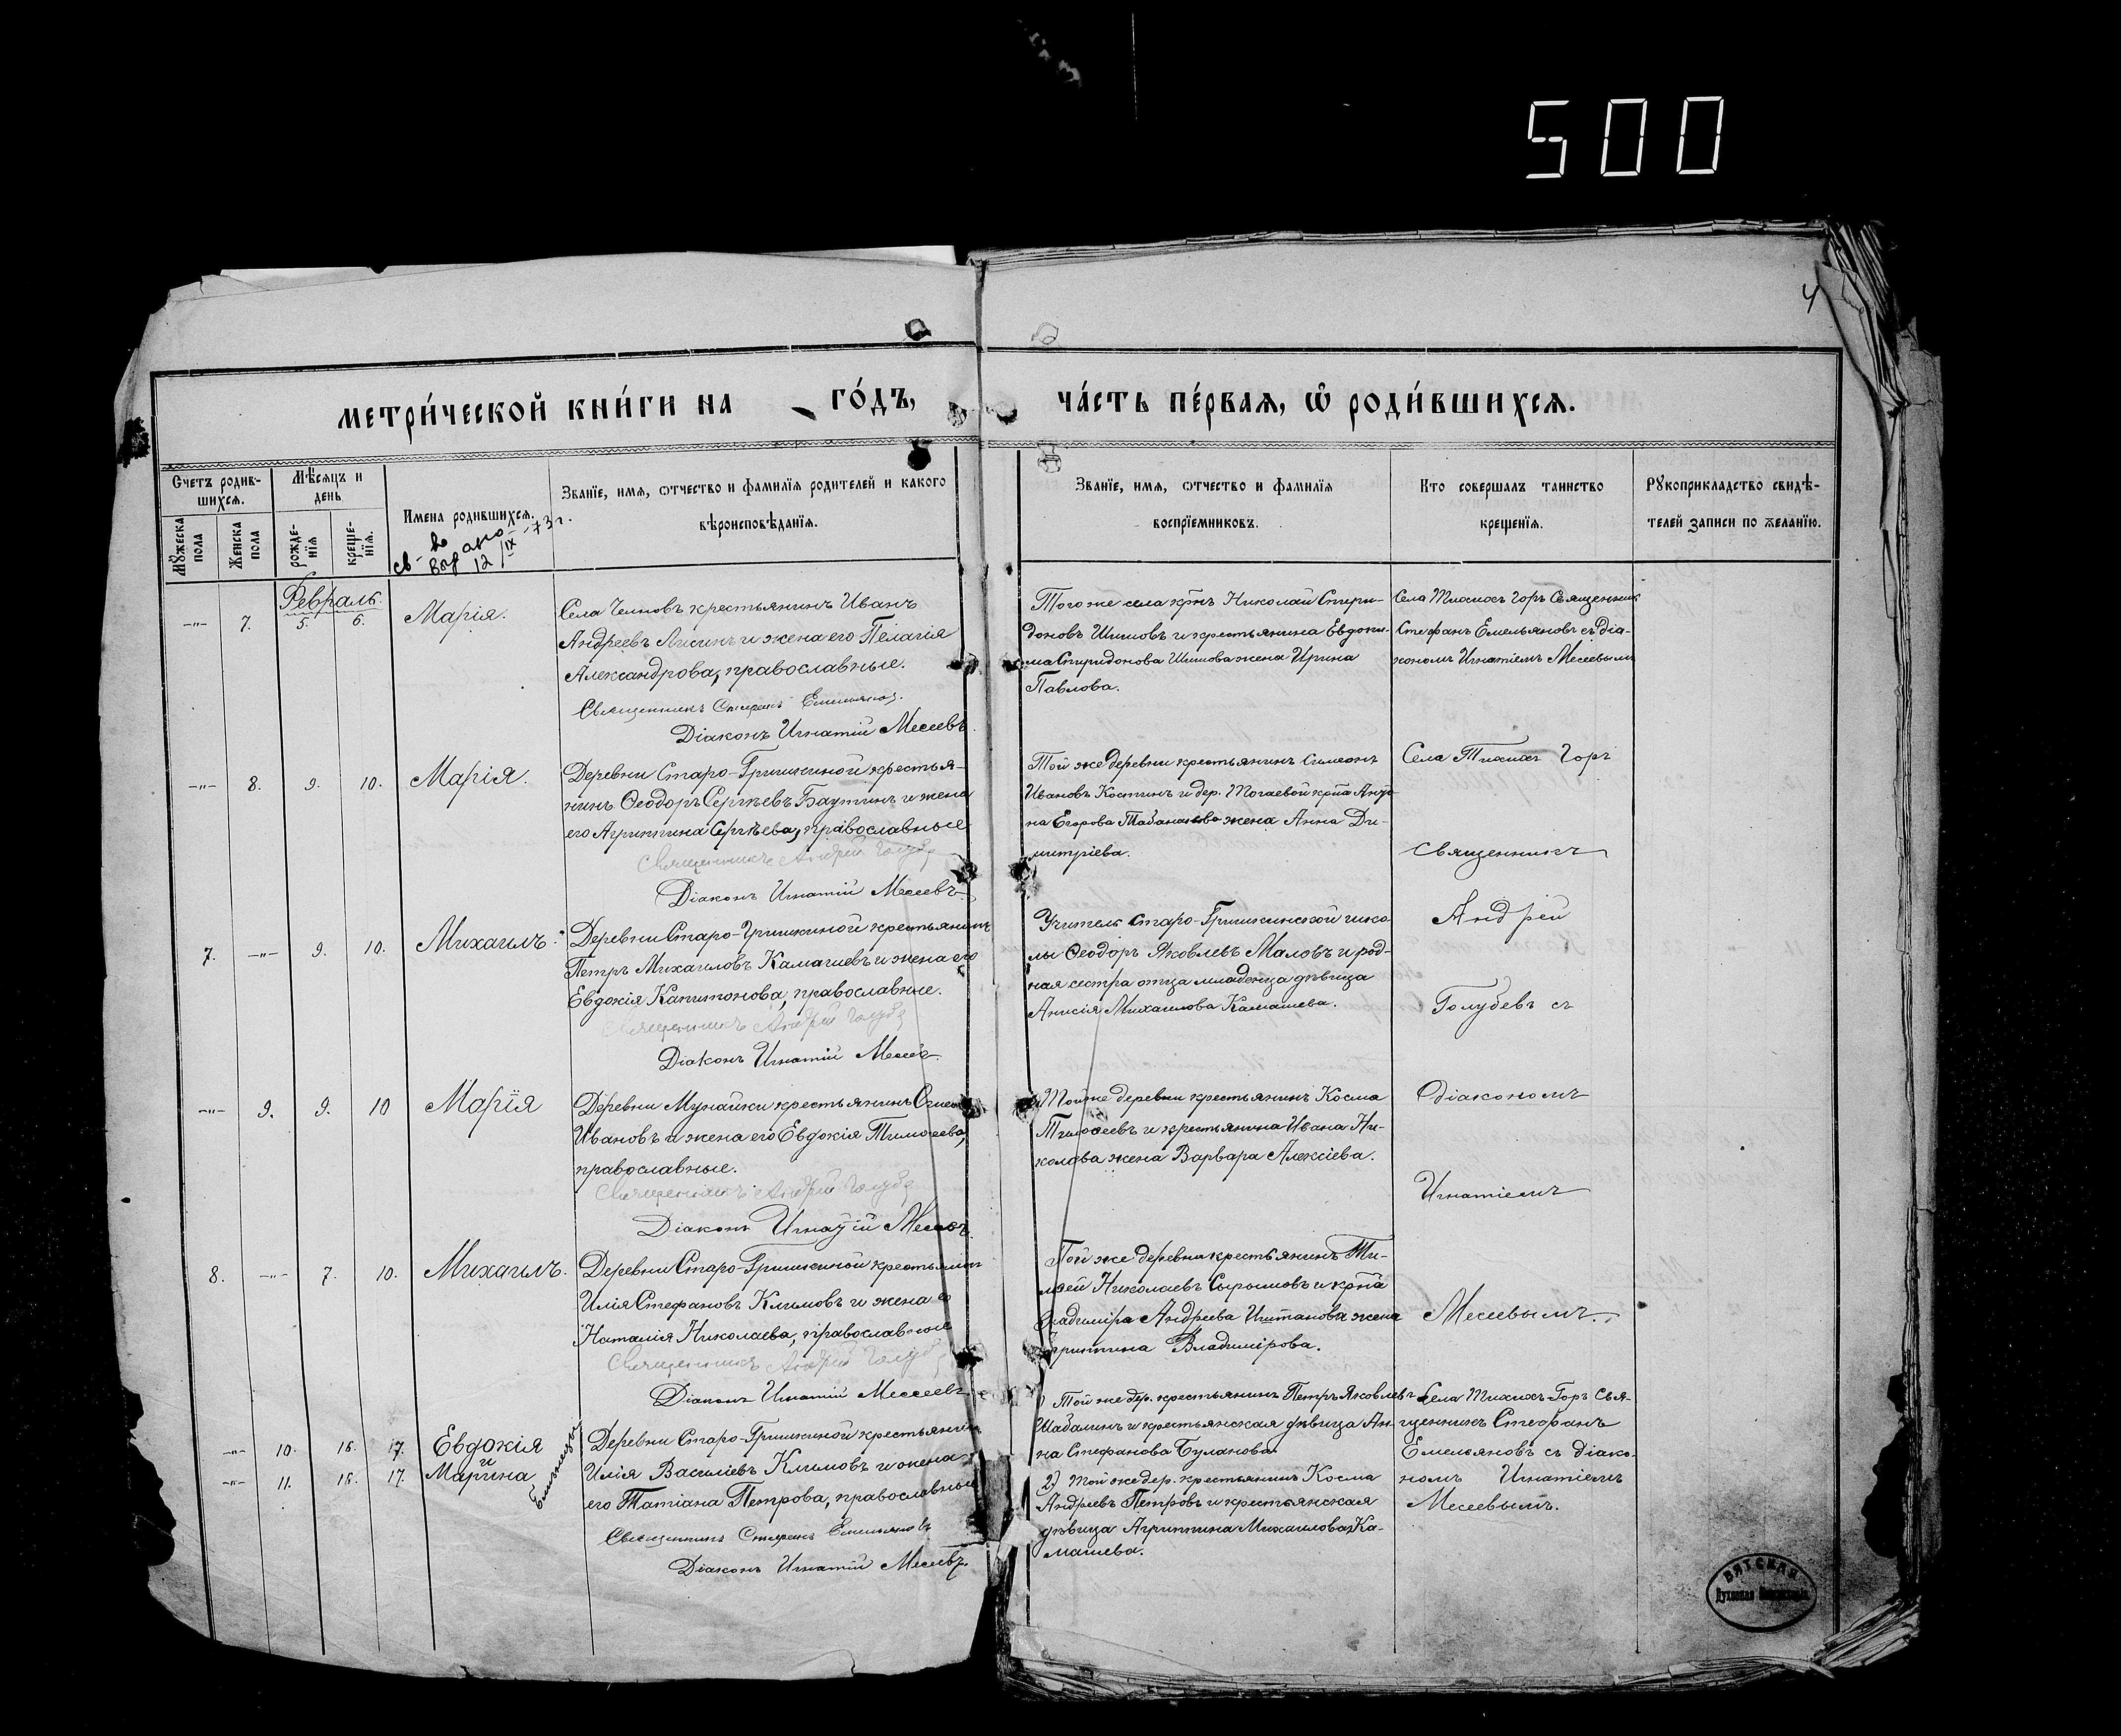 500
4
МЕТРИ́ЧЕСКОЙ КНИ́ГИ НА ГО́ДЪ,
ЧА́СТЬ ПЕ́РВАЯ, Ѡ РОДИ́ВШИХСЯ.
Счетъ родив-
шихся.
Мѣсяцъ и
день
Мужеска
пола
Женска
пола
рожде-
нїя
креще-
нїя.
Имена родившихся.
12/IX-73 г.
Званїе, имя, отчество и фамилїя родителей и какого
вѣроисповѣданїя.
Званїе, имя, отчество и фамилїя
воспрїемниковъ.
Кто совершалъ таинство
крещенїя.
Рукоприкладство свидѣ-
телей записи по желанїю.
Февраль.
-"- 7. 5. 6. Марія.
Села Челновъ крестьянинъ Иванъ
Андреевъ Лисинъ и жена его Пелагія
Александрова, православные.
Священникъ Стефанъ Емельяновъ
Діаконъ Игнатій Месеевъ.
Того же села кр͠тнъ Николай Спири-
доновъ Шишовъ и крестьянина Евдоки-
ма Спиридонова Шишова жена Ирина
Павлова.
Села Тихихъ Горъ Священникъ
Стефанъ Емельяновъ съ діа-
кономъ Игнатіемъ Месеевымъ
-"- 8. 9. 10. Марія.
Деревни Старо-Гришкиной крестья-
нинъ Ѳеодоръ Сергѣевъ Баутинъ и жена
его Агриппина Сергѣева, православные
Священникъ Андрей Голубе
Діаконъ Игнатій Месеевъ
Той же деревни крестьянинъ Симеонъ
Ивановъ Костинъ и дер. Тогаевой кр͠тна
на Егорова жена Анна Ди-
митріева.
Села Тихихъ Горъ
Священникъ
7. -"- 9. 10. Михаилъ.
Деревни Старо-Гришкиной крестьянинъ
Петръ Михаиловъ Камашевъ и жена его
Евдокія Капитонова, православные.
Священникъ Андрей Голубе
Діаконъ Игнатій Месеевъ
Учитель Старо-Гришкинской шко-
лы Ѳеодоръ Яковлевъ Маловъ и род-
ная сестра отца младенца дѣвица
Анисія Михаилова Камашева.
Андрей
Голубевъ съ
-"- 9. 9. 10 Марія
Деревни Мунайки крестьянинъ
Ивановъ и жена его Евдокія Тимоѳеева,
православные.
Священникъ Андрей Голубе
Діаконъ Игнатій Месеевъ.
Той же деревни крестьянинъ Косма
Тимоѳеевъ и крестьянина Ивана Ни-
колаева жена Варвара Алексіева.
діакономъ
Игнатіемъ
8. -"- 7. 10. Михаилъ.
Деревни Старо-Гришкиной крестьянинъ
Илія Стефановъ Климовъ и жена его
Наталія Николаева, православные
Священникъ Андрей Голубе
Діаконъ Игнатій Месеевъ
Той же деревни крестьянинъ Ти-
Николаевъ Сырошовъ и кр͠тна
Владиміра Андреева Иштанова жена
Агрипина Владимірова.
Месеевымъ.
-"- 10. 16. 17. Евдокія
и
-"- 11. 16. 17. Марина
Близнецы
Деревни Старо-Гришкиной крестьянинъ
Илія Василіевъ Климовъ и жена
его Татіана Петрова, православные
Священникъ Стефанъ Емельяновъ
Діаконъ Игнатій Месеевъ.
1) Той же дер. крестьянинъ Петръ Яковлевъ
Шабалинъ и крестьянская дѣвица Ан-
на Стефанова Буланова.
2) Той же дер. крестьянинъ Косма
Андреевъ Петровъ и крестьянская
дѣвица Агрипина Михаилова Ка-
машева.
Села Тихихъ Горъ Свя-
щенникъ Стефанъ
Емельяновъ съ діако-
номъ Игнатіемъ
Месеевымъ.
ВЯТСКАЯ
Духовная Консисторія